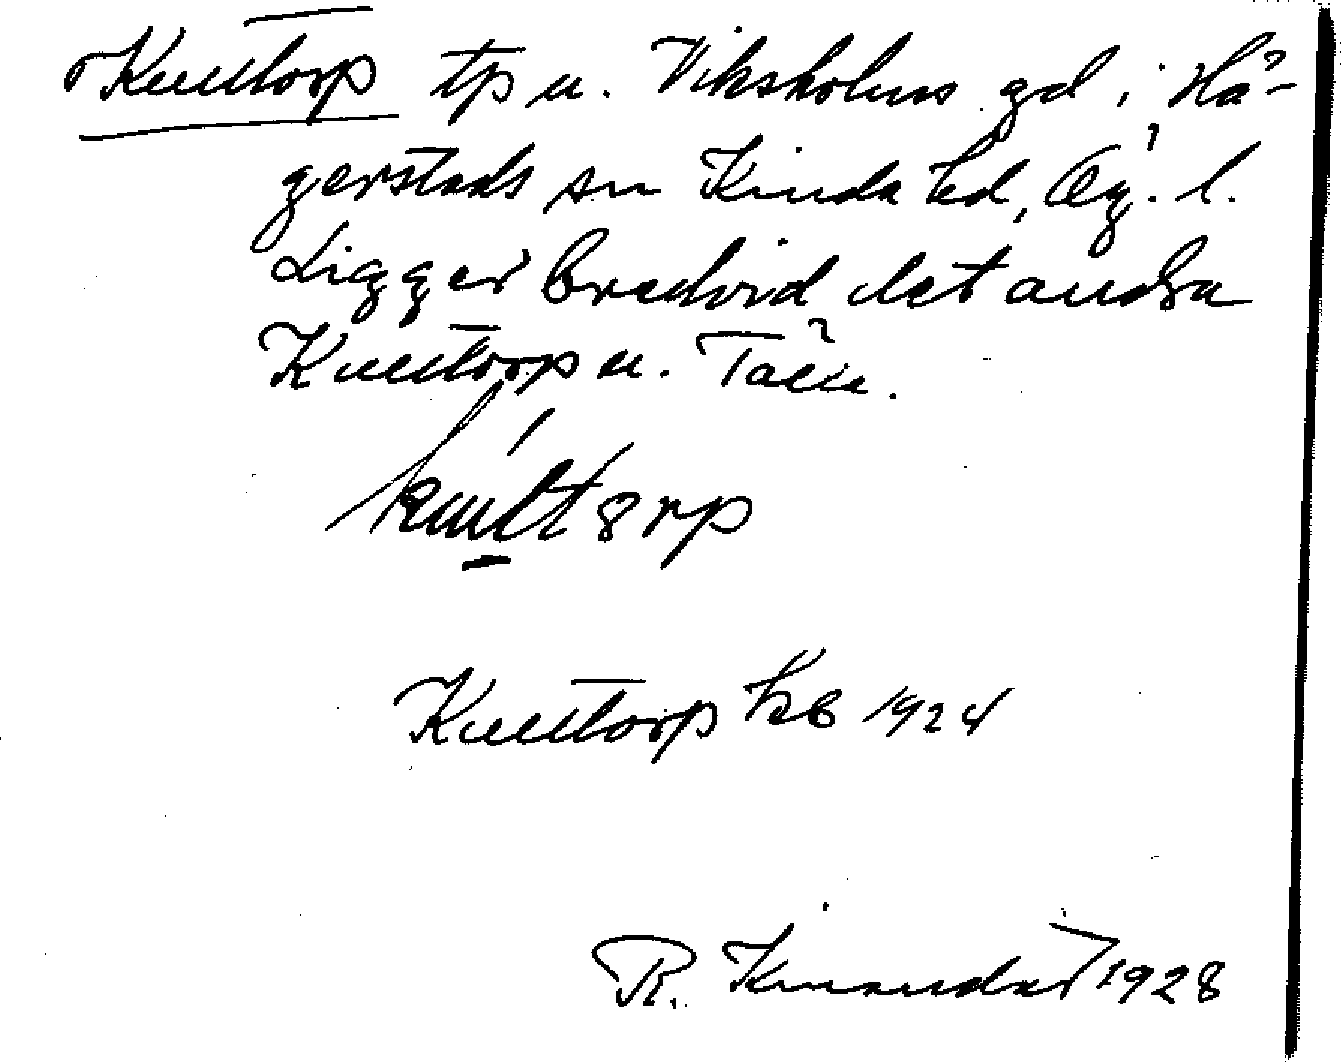 Kulltorp tp u. Viksholms gd i Hä-
gerstads sn Kinda hd, Ög. l.
Ligger bredvid det andra
Kulltorp u.
Kulltorp kb 1924
R. Kinander 1928